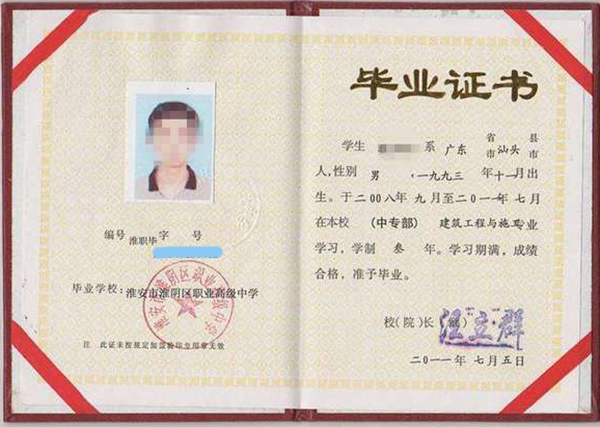 毕业证书
学生 系 广东 省市 汕头 县市
人,性别 男 ,一九九三 年 十一 月出
生。于二00八年 九月至二0一一年 七月
在本校 (中专部) 建筑工程与施工专业
学习,学制 叁 年。学习期满,成绩
合格,准予毕业。
校(院)长(章) 汪立群
二0一一年七月五日
编号 淮职毕 字 号
毕业学校: 淮安市淮阴区职业高级中学
淮安市淮阴区职业高级中学
注 此证未按规定加盖验印专用章无效